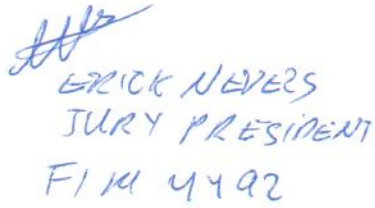 ERICK NEVERS
JURY PRESIDENT
FIM 4492